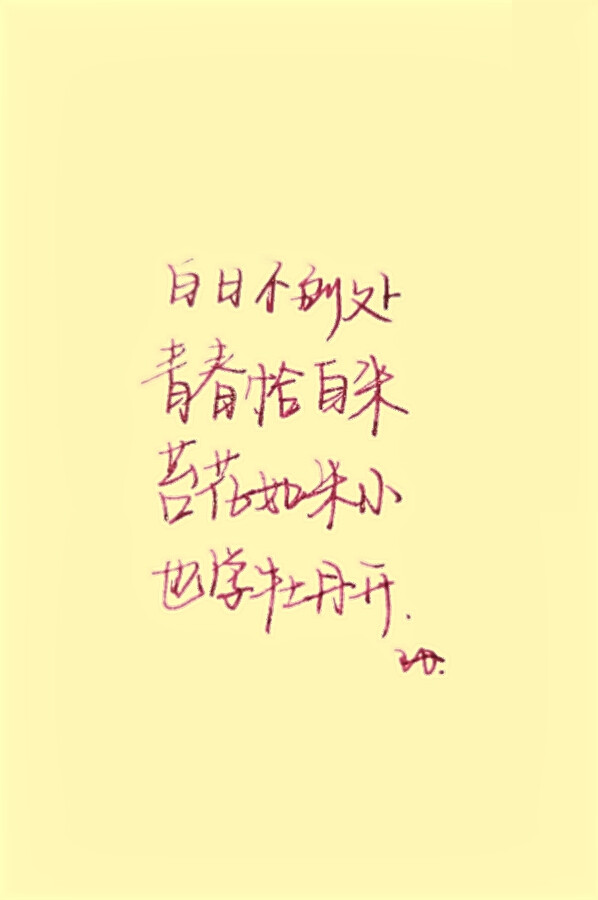 白日不到处
青春恰自来
苔花如米小
也学牡丹开.